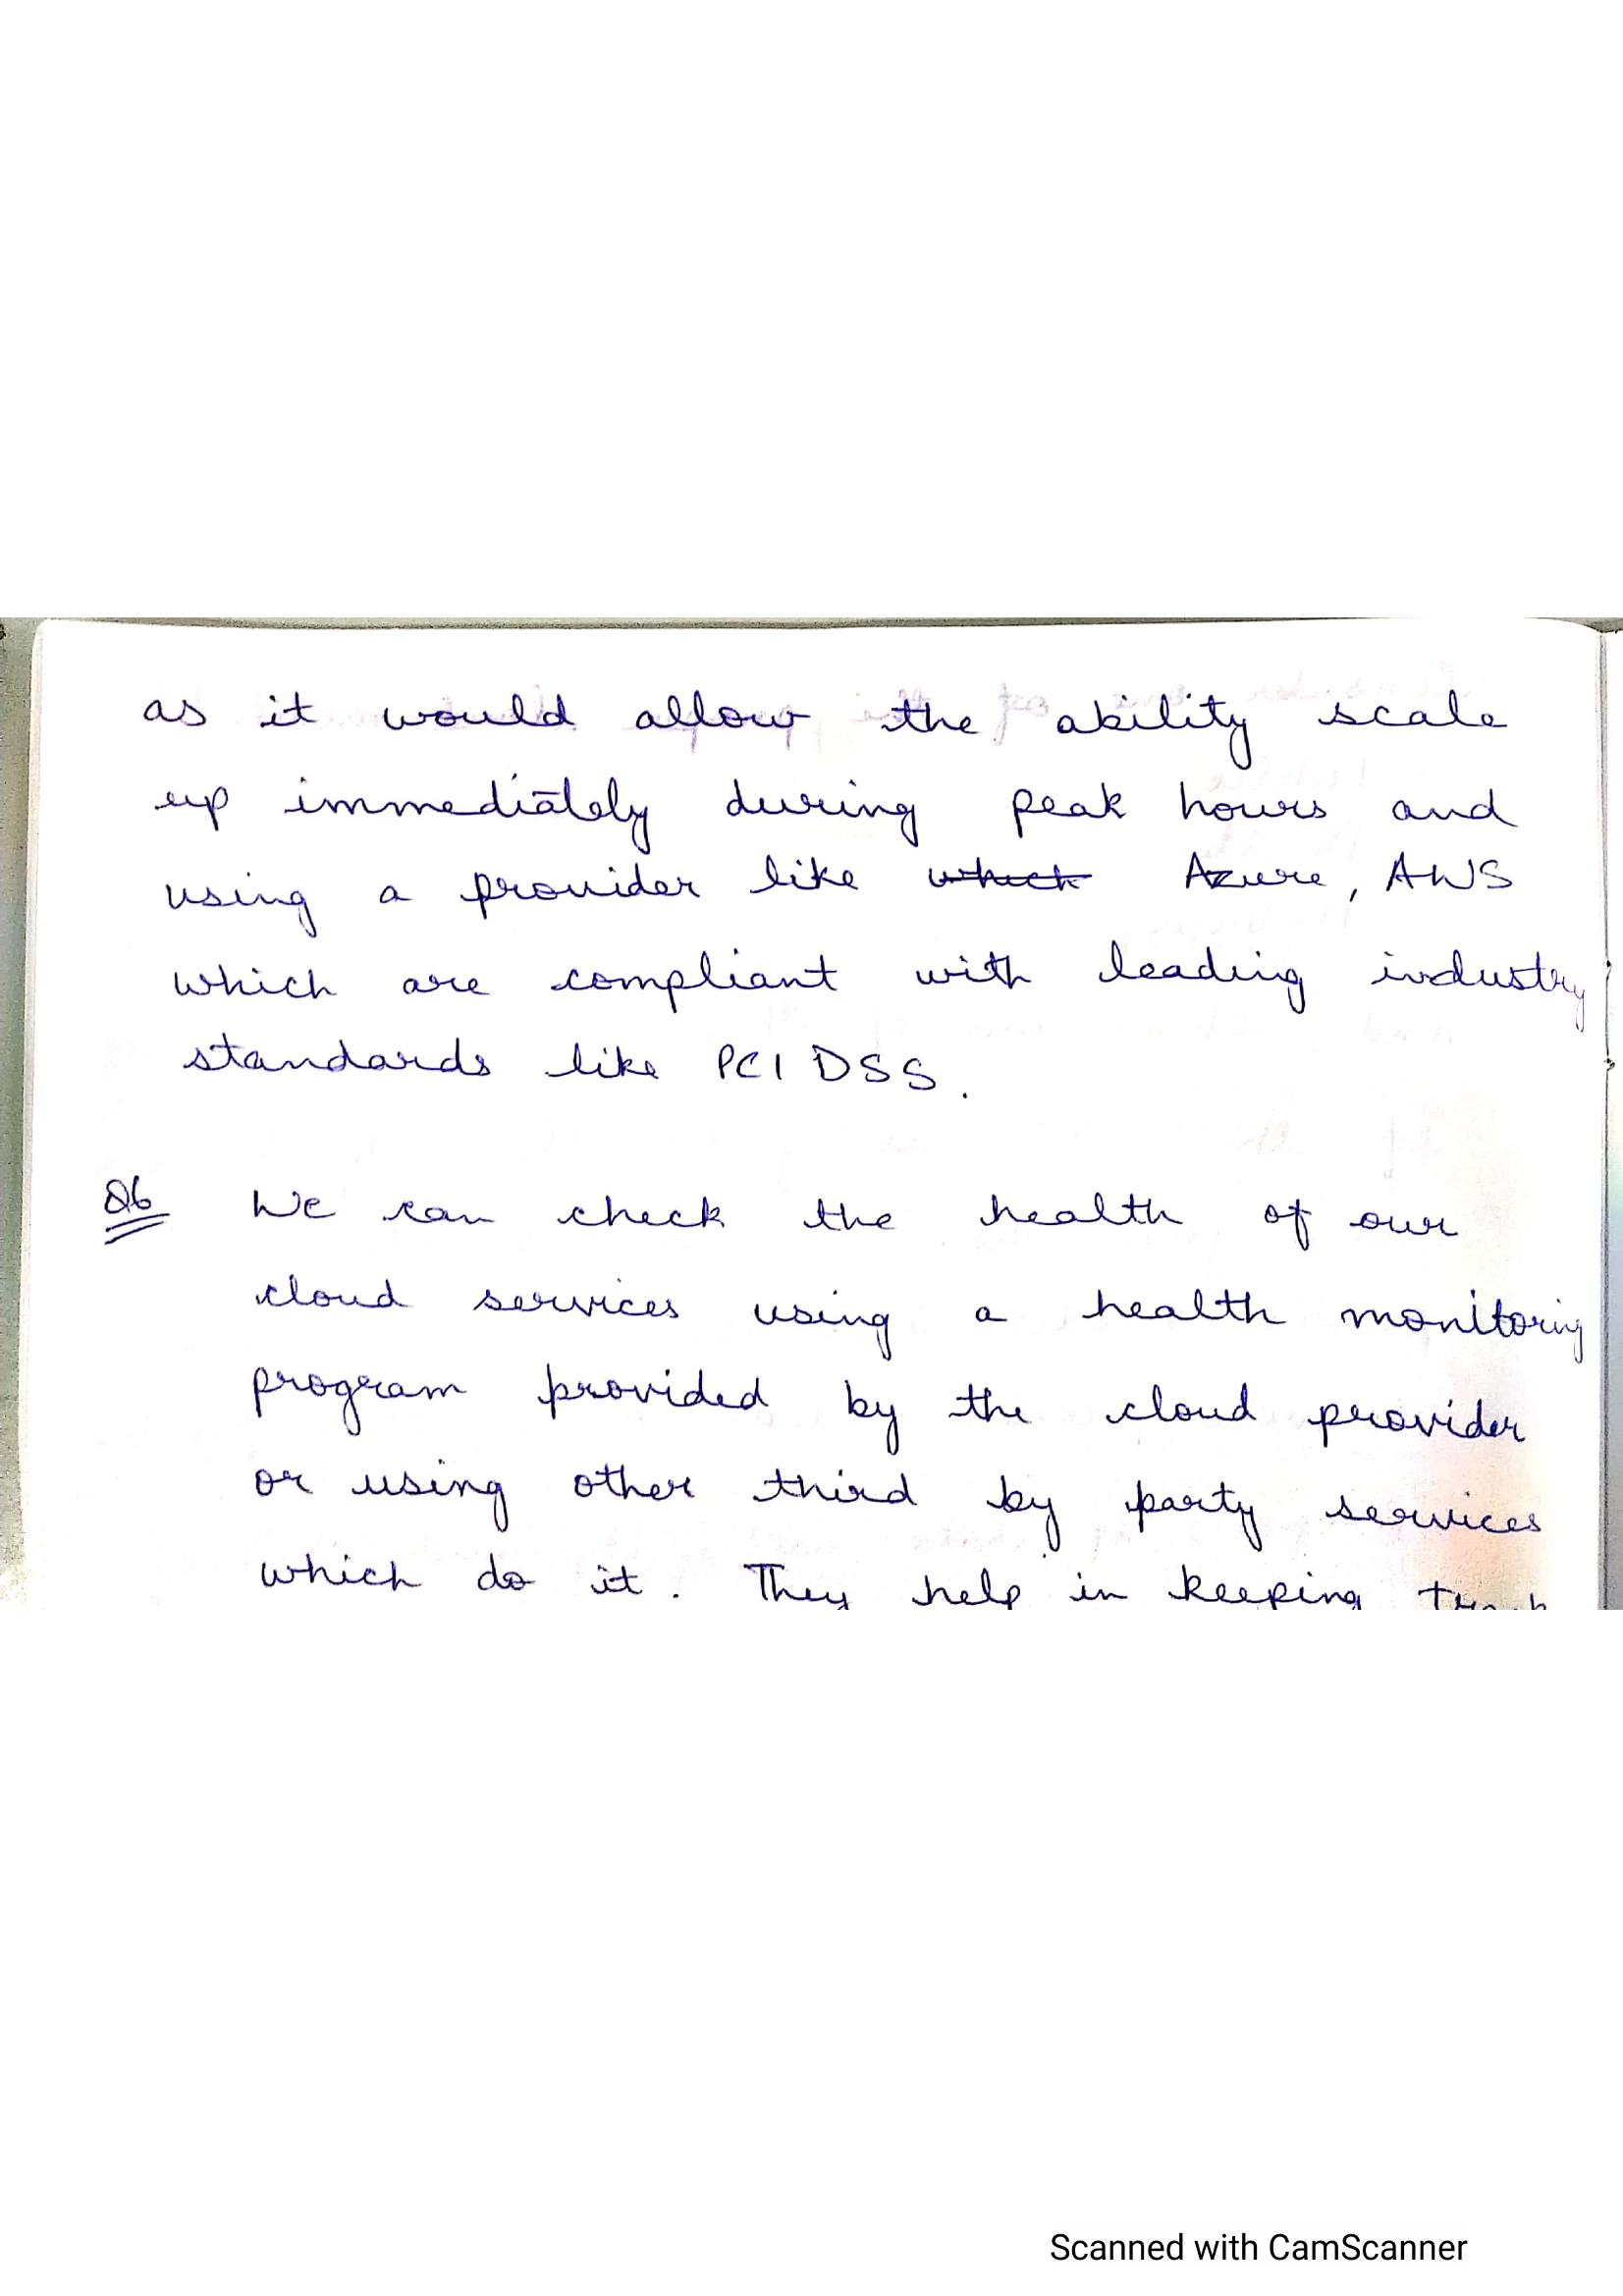 as it would allow the ability scale
up immediately during peak hours and
using a provider like which Azure, AWS
which are compliant with leading industry
standards like PCI DSS.
Q6 We can check the health of our
cloud services using a health monitoring
program provided by the cloud provider
or using other third by party services
which do it. They help in keeping
Scanned with CamScanner